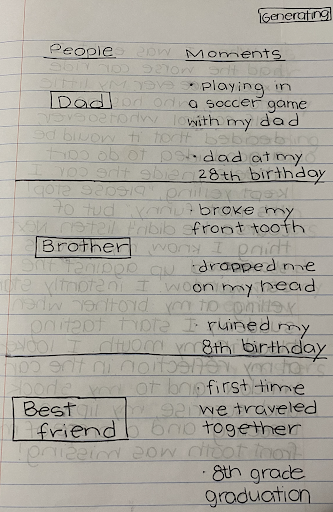 Generating
People Moments
Dad
• playing in
a soccer game
with my dad
• dad at my
28th birthday
Brother
• broke my
front tooth
• dropped me
on my head
• ruined my
8th birthday
Best
friend
• first time
we traveled
together
• 8th grade
graduation